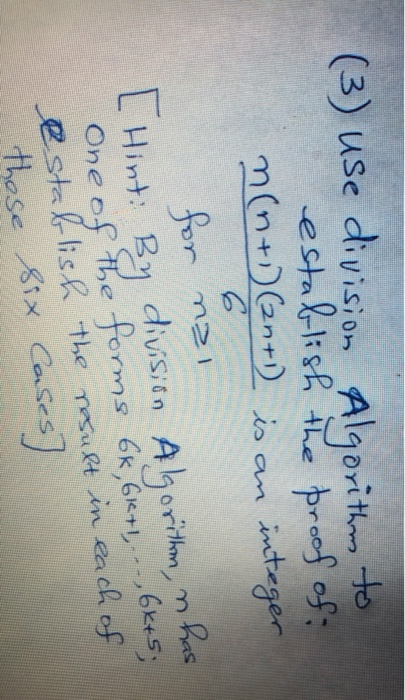 (3) Use division Algorithm to
establish the proof of:
n(n+1)(2n+1)
6
is an integer
for n≥1
[Hint: By division Algorithm, n has
One of the forms 6k, 6k+1, ..., 6k+5;
establish the result in each of
these six Cases]